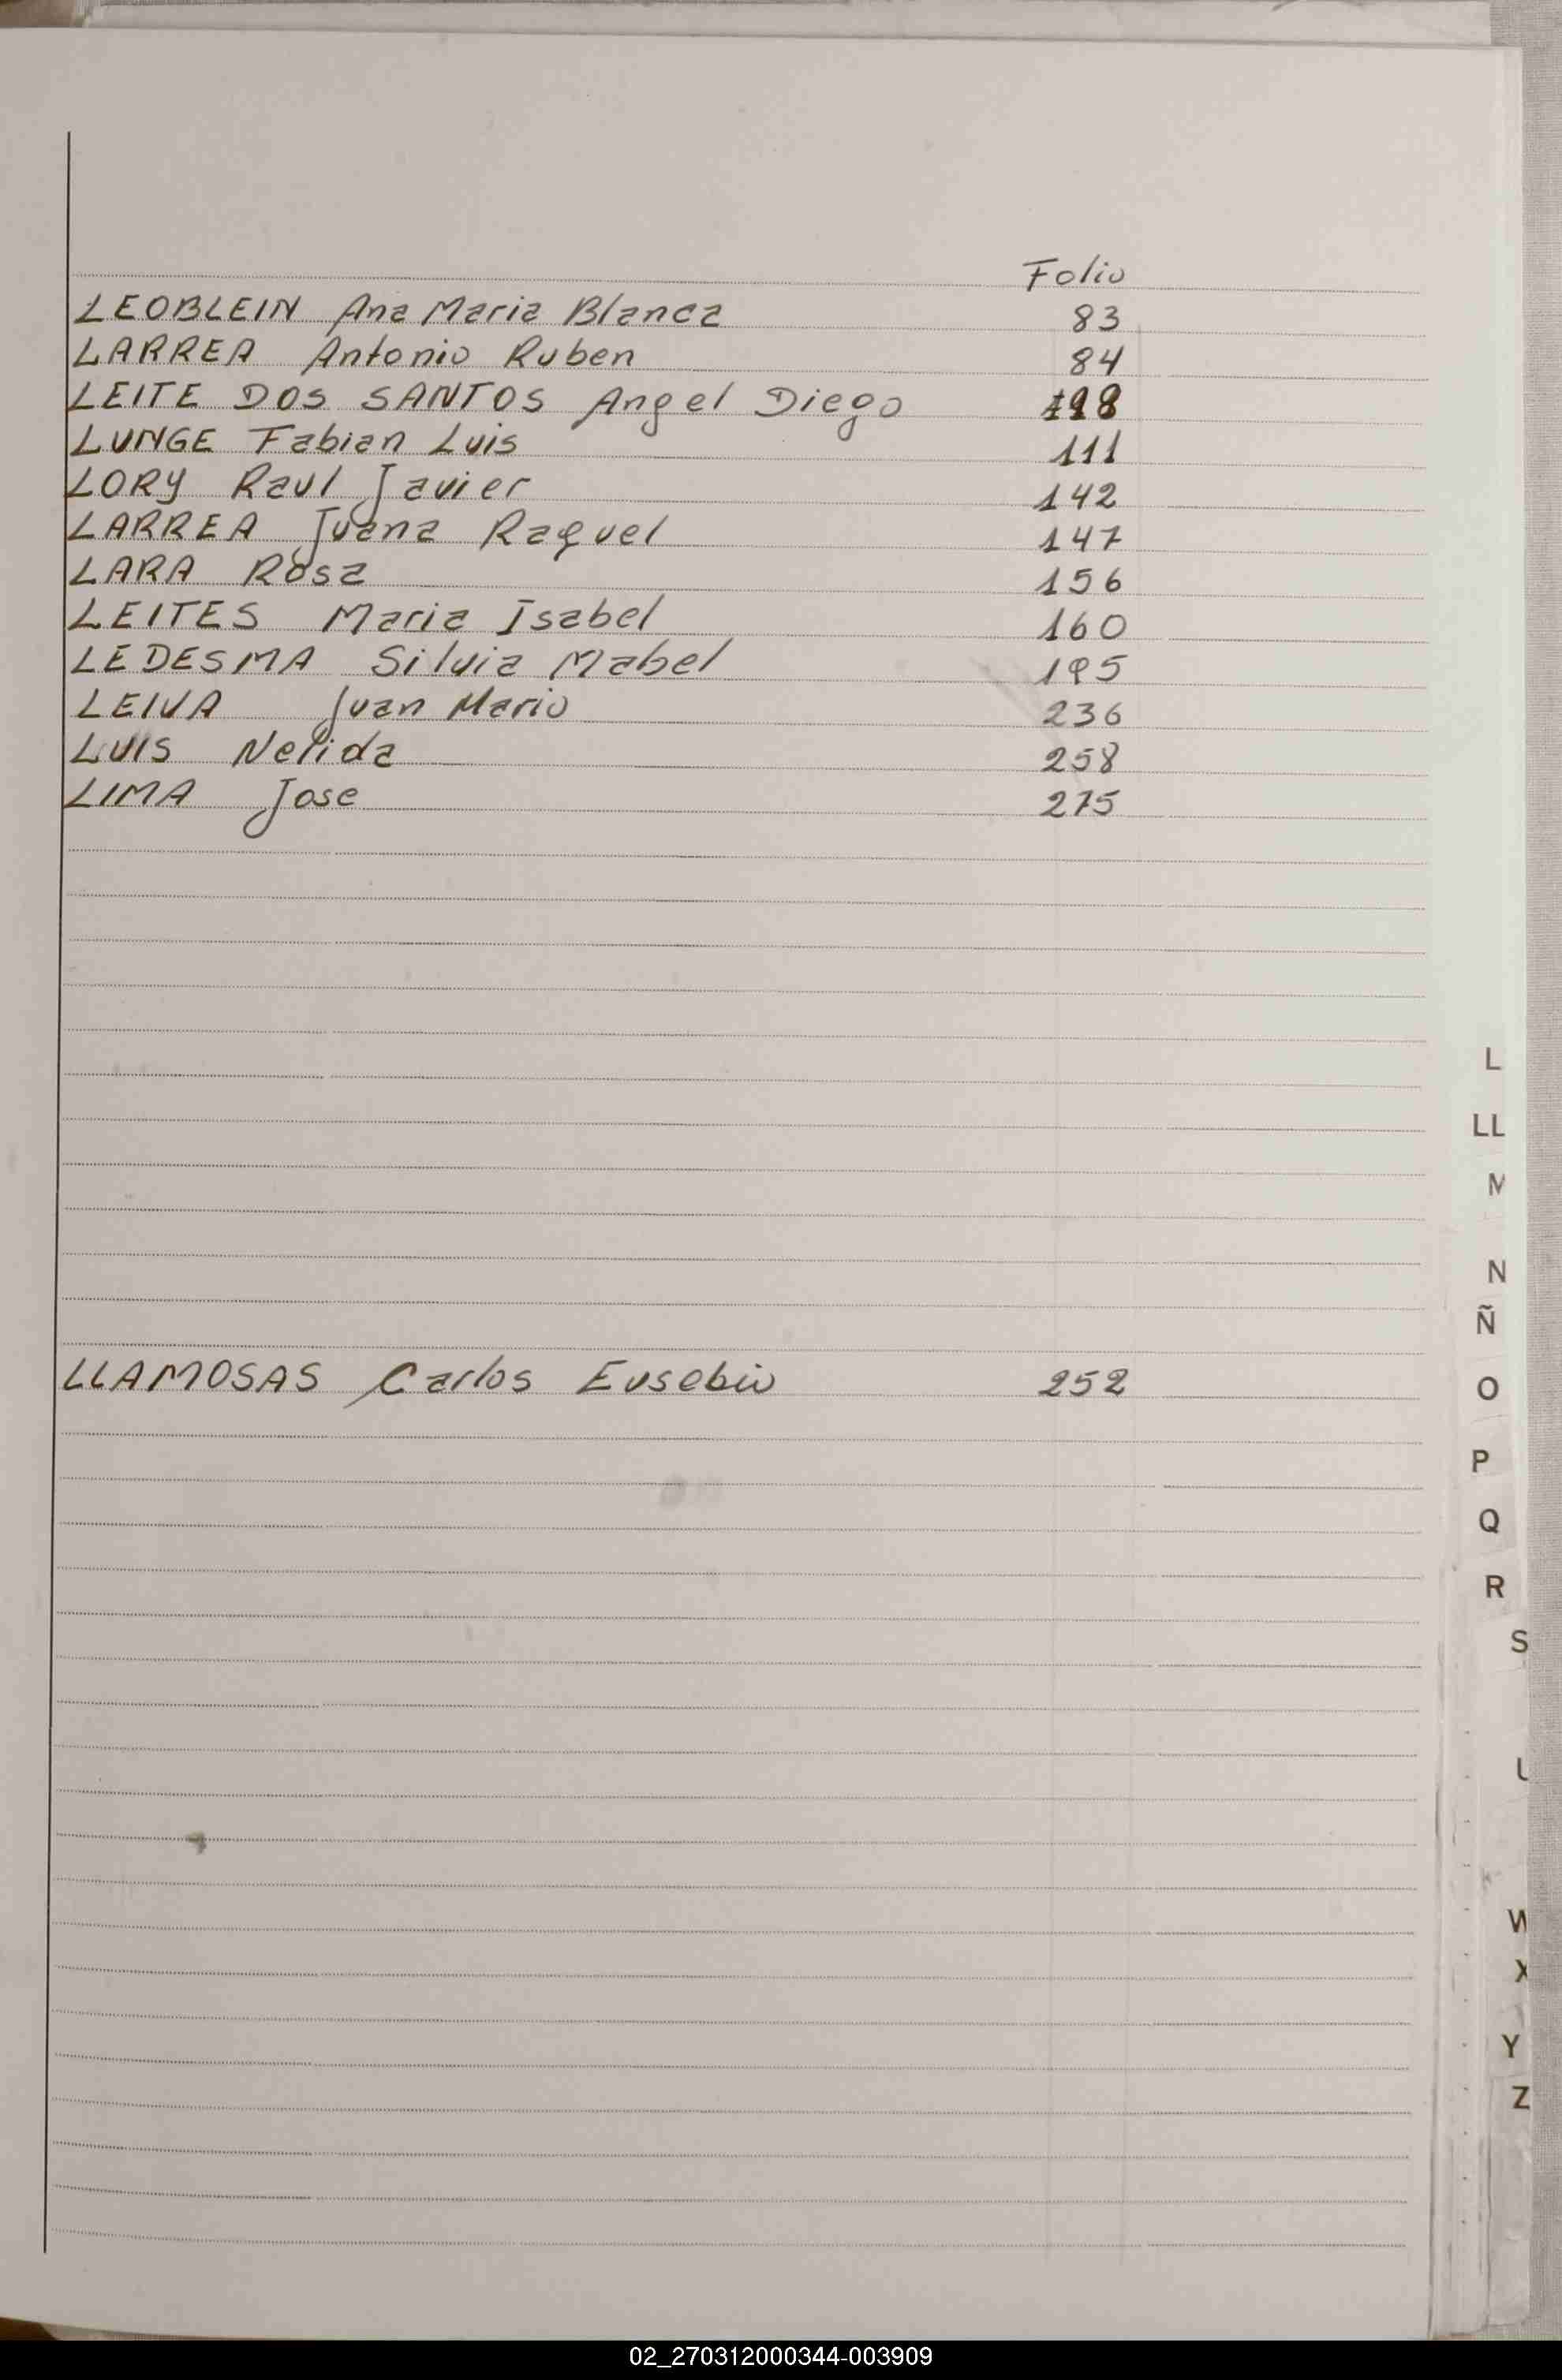 Folio
LEOBLEIN Ana Maria Blanca 83
LARREA Antonio Ruben 84
LEITE DOS SANTOS Angel Diego
LUNGE Fabian Luis 111
LORY Raul Javier 142
LARREA Juana Raquel 147
LARA Rosa 156
LEITES Maria Isabel 160
LEDESMA Silvia Mabel 195
LEIVA Juan Mario 236
LUIS Nelida 258
LIMA Jose 275
LLAMOSAS Carlos Eusebio 252
L
LL
M
N
Ñ
O
P
Q
R
S
U
W
X
Y
Z
02_270312000344-003909